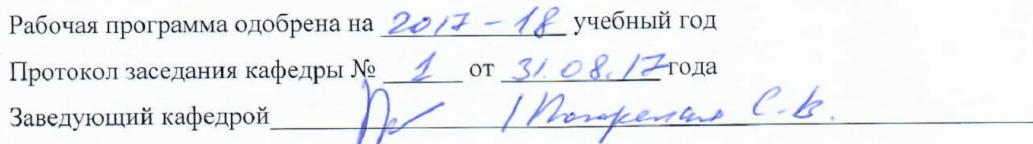 Рабочая программа одобрена на 2017 – 18 учебный год
Протокол заседания кафедры № 1 от 31.08.17 года
Заведующий кафедрой С.В.